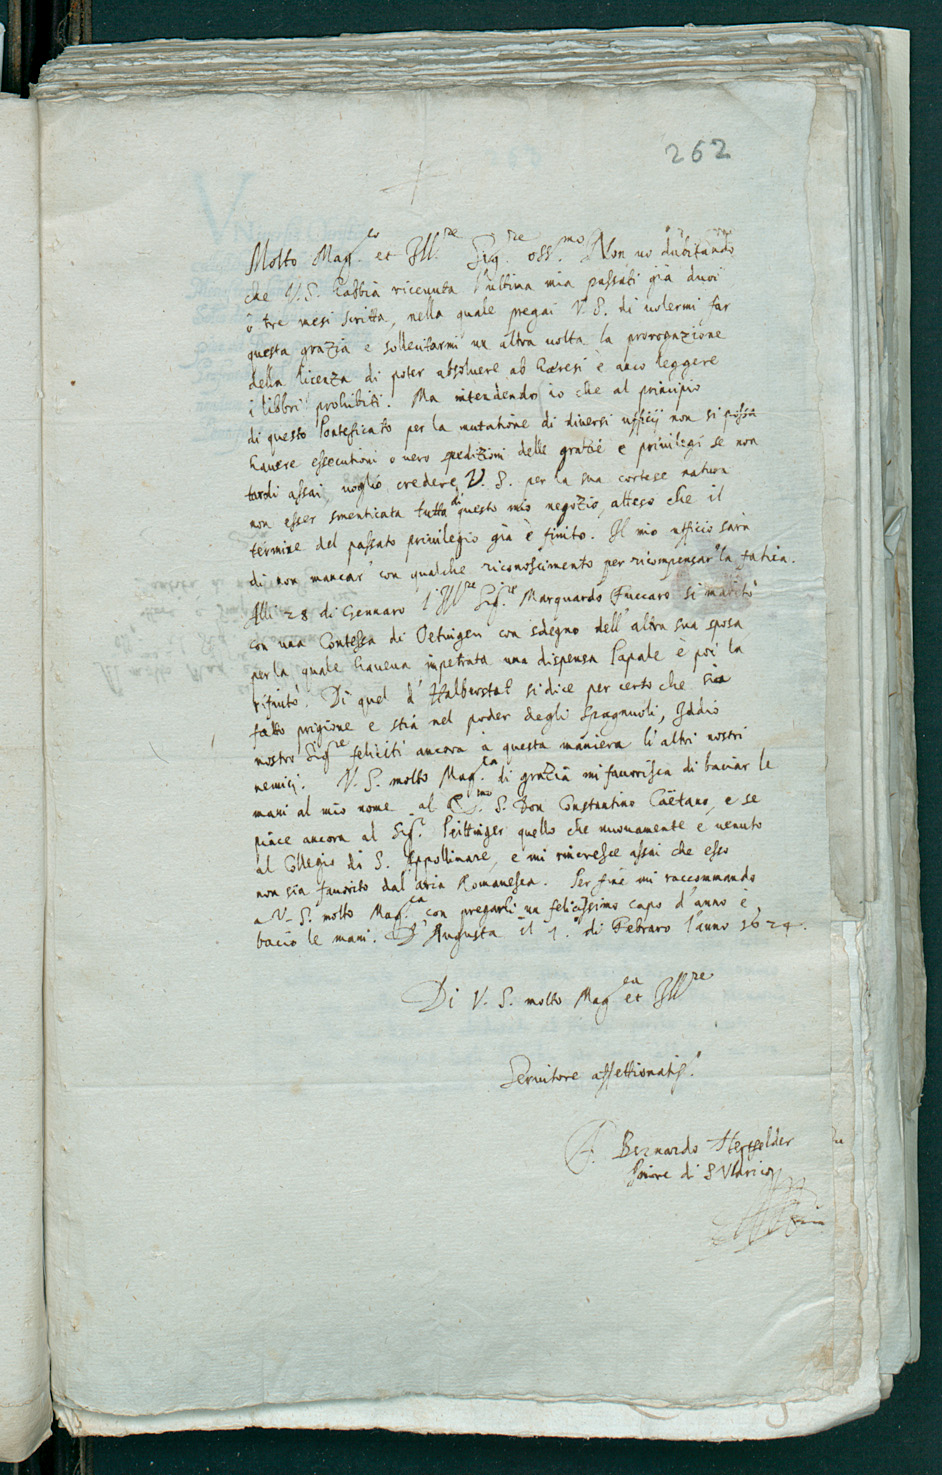 262
Molto Mag.co et Ill.re Sig.re oss.mo Non uo dubitando
che V. S. habbia riceuuta l'ultima mia passati già duoi
ò tre mesi scritta, nella quale pregai V. S. di uolermi far
questa grazia e sollecitarmi un altra uolta la prorogazione
della licenza di poter absoluere ab haeresi è anco leggere
i libbri prohibiti. Ma intendendo io che al principio
di questo Pontificato per la mutatione di diuersi ufficij non si possa
hauere essecutioni o uero spedizioni delle grazie e priuilegi se non
tardi assai, uoglio credere V. S. per la sua cortese natura
non esser smenticata tutta di questo mio negozio, atteso che il
termine del passato priuilegio già è finito. Il mio ufficio sarà
di non mancar' con qualche riconoscimento per ricompensar' la fatica.
Alli 28 di Gennaro l'Ill.re Sig.re Marquardo Fuccaro si maritò
con una Contessa di Oetingen con sdegno dell' altra sua sposa
per la quale haueua impetrata una dispensa Papale è poi la
rifiutò. Di quel d'Halberstat si dice per certo che sia
fatto prigione e stià nel poder degli Spagnuoli, Iddio
nostro Sig.re feliciti ancora à questa maniera li altri nostri
nemici. V. S. molto Mag.ca di grazia mi fauorisca di baciar le
mani al mio nome al S. Don Constantino Caëtano, e se
piace ancora al Sig.r Peittinger quello che nuouamente è uenuto
al Collegio di S. Appollinare, e mi rincresce assai che esso
non sia fauorito dal' aria Romanesca. Per fine mi raccommando
a V. S. molto Mag.ca con pregarli un felicissimo capo d'anno è
bacio le mani. D'Augusta il 1.º di Febraro l'anno 1624.
Di V. S. molto Mag.ca et Ill.re
Seruitore affettionatis.º
Bernardo Hertfelder
Priore di S Vldarico